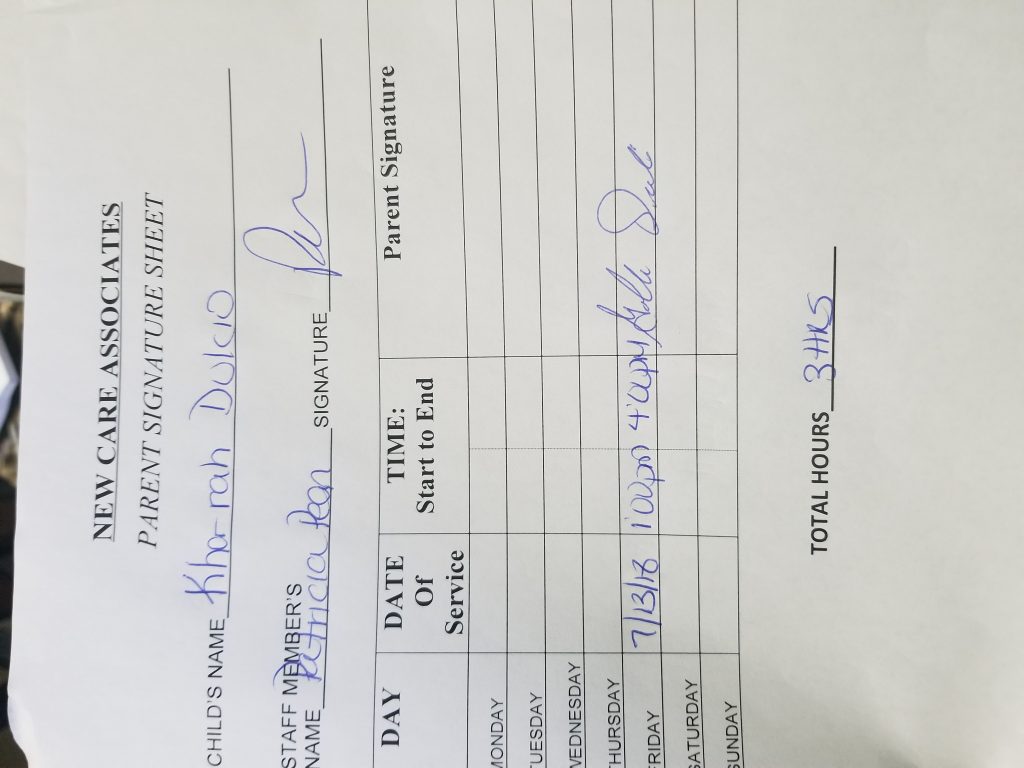 NEW CARE ASSOCIATES
PARENT SIGNATURE SHEET
CHILD'S NAME Kha-rah Dulcio
STAFF MEMBER'S
NAME Patricia Pean SIGNATURE
DAY DATE Of Service TIME: Start to End Parent Signature
MONDAY
TUESDAY
WEDNESDAY
THURSDAY
FRIDAY 7/13/18 1:00pm 4:00pm
SATURDAY
SUNDAY
TOTAL HOURS 3 HRS